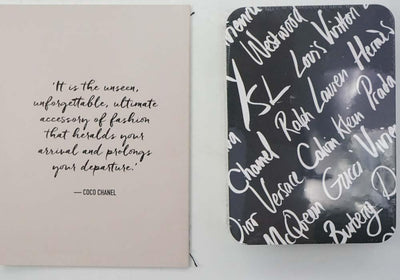 'It is the unseen,
unforgettable, ultimate
accessory of fashion
that heralds your
arrival and prolongs
your departure.'
— COCO CHANEL
Vienna
Westwood
Louis Vuitton
YSL Ralph Lauren Hermès
Chanel Calvin Klein Prada
Dior Versace Gucci
McQueen Burberry